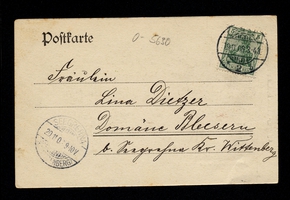 Postkarte
0- 5650
Fräulein
Lina Dietzer
Domäne Bleesern
b. Seegrehna Kr. Wittenberg